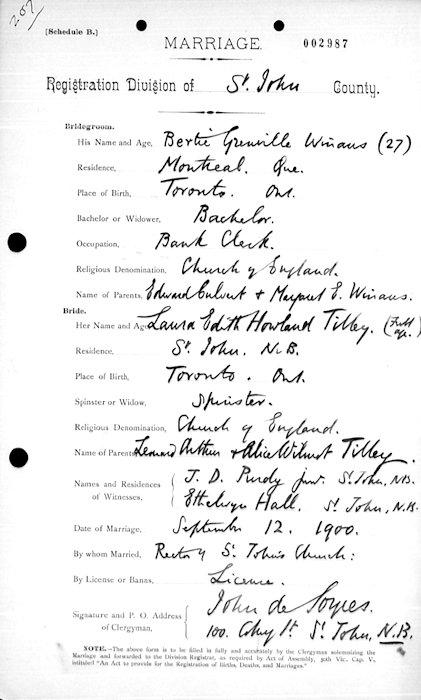 207
[Schedule B.]
MARRIAGE.
002987
Registration Division of St. John County.
Bridegroom.
His Name and Age, Bertie Grenville Winans (27)
Residence, Montreal. Que.
Place of Birth, Toronto. Ont.
Bachelor or Widower, Bachelor.
Occupation, Bank Clerk.
Religious Denomination, Church of England.
Name of Parents, Edward Culvert + Margaret E. Winans.
Bride.
Her Name and Age, Laura Edith Howland Tilley. (Full age.)
Residence, St. John. N.B.
Place of Birth, Toronto. Ont.
Spinster or Widow, Spinster.
Religious Denomination, Church of England.
Name of Parents, Leonard Arthur + Alice Wilmot Tilley.
Names and Residences of Witnesses,
J. D. Purdy junr. St. John, N.B.
Ethelwyn Hall. St. John, N.B.
Date of Marriage, September 12. 1900.
By whom Married, Rector of St. John's Church:
By License or Banns, Licence.
Signature and P. O. Address of Clergyman,
John de Soyres.
100. St. St. John, N.B.
NOTE.—The above form is to be filled in fully and accurately by the Clergyman solemnizing the
Marriage and forwarded to the Division Registrar, as required by Act of Assembly, 50th Vic. Cap. V,
intituled "An Act to provide for the Registration of Births, Deaths, and Marriages."